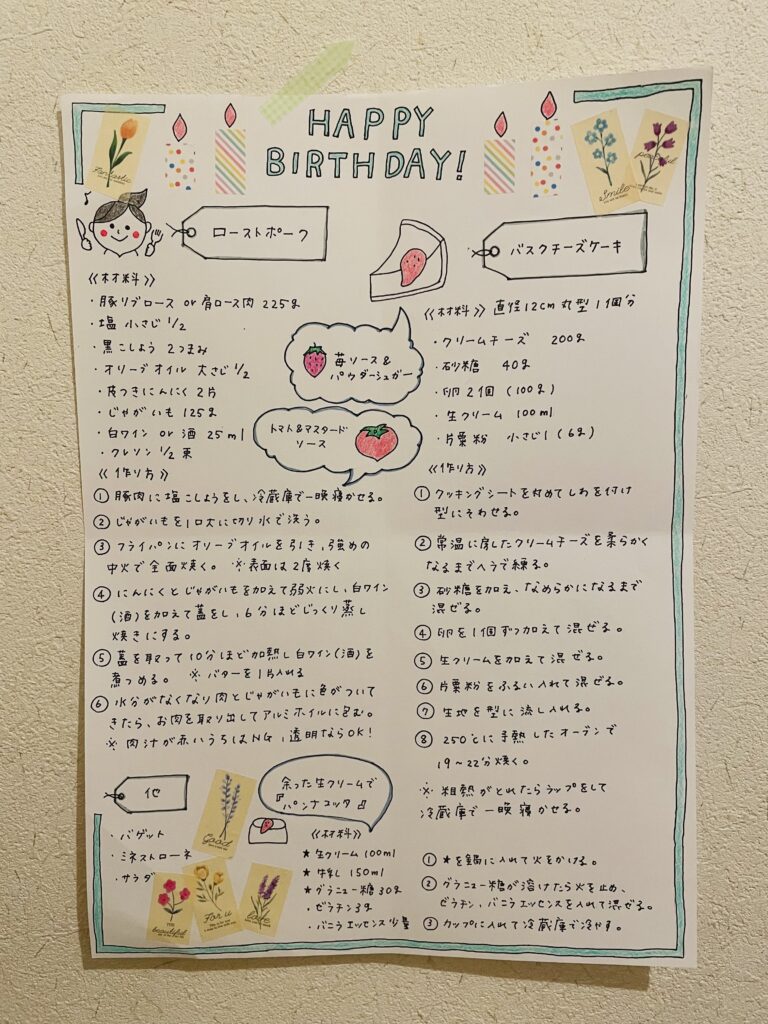 HAPPY
BIRTHDAY!
Fantastic
Smile
peaceful
ローストポーク
《材料》
・豚リブロース or 肩ロース肉 225g
・塩 小さじ 1/2
・黒こしょう 2つまみ
・オリーブオイル 大さじ 1/2
・皮つきにんにく 2片
・じゃがいも 125g
・白ワイン or 酒 25ml
・クレソン 1/2 束
《作り方》
① 豚肉に塩こしょうをし、冷蔵庫で一晩寝かせる。
② じゃがいもを1口大に切り水で洗う。
③ フライパンにオリーブオイルを引き、強めの
中火で全面焼く。 ※表面は2度焼く
④ にんにくとじゃがいもを加えて弱火にし、白ワイン
(酒)を加えて蓋をし、6分ほどじっくり蒸し
焼きにする。
⑤ 蓋を取って10分ほど加熱し白ワイン(酒)を
煮つめる。 ※バターを1片入れる
⑥ 水分がなくなり肉とじゃがいもに色がついて
きたら、お肉を取り出してアルミホイルに包む。
※ 肉汁が赤いうちはNG、透明ならOK!
苺ソース&
パウダーシュガー
トマト&マスタード
ソース
バスクチーズケーキ
《材料》直径12cm丸型1個分
・クリームチーズ 200g
・砂糖 40g
・卵2個 (100g)
・生クリーム 100ml
・片栗粉 小さじ1 (6g)
《作り方》
① クッキングシートを丸めてしわを付け
型にそわせる。
② 常温に戻したクリームチーズを柔らかく
なるまでヘラで練る。
③ 砂糖を加え、なめらかになるまで
混ぜる。
④ 卵を1個ずつ加えて混ぜる。
⑤ 生クリームを加えて混ぜる。
⑥ 片栗粉をふるい入れて混ぜる。
⑦ 生地を型に流し入れる。
⑧ 250℃に予熱したオーブンで
19～22分焼く。
※ 粗熱がとれたらラップをして
冷蔵庫で一晩寝かせる。
他
・バゲット
・ミネストローネ
・サラダ
Good
beautiful
For u
余った生クリームで
『パンナコッタ』
《材料》
★生クリーム100ml
★牛乳 150ml
★グラニュー糖30g
・ゼラチン3g
・バニラエッセンス少量
① ★を鍋に入れて火をかける。
② グラニュー糖が溶けたら火を止め、
ゼラチン、バニラエッセンスを入れて混ぜる。
③ カップに入れて冷蔵庫で冷やす。